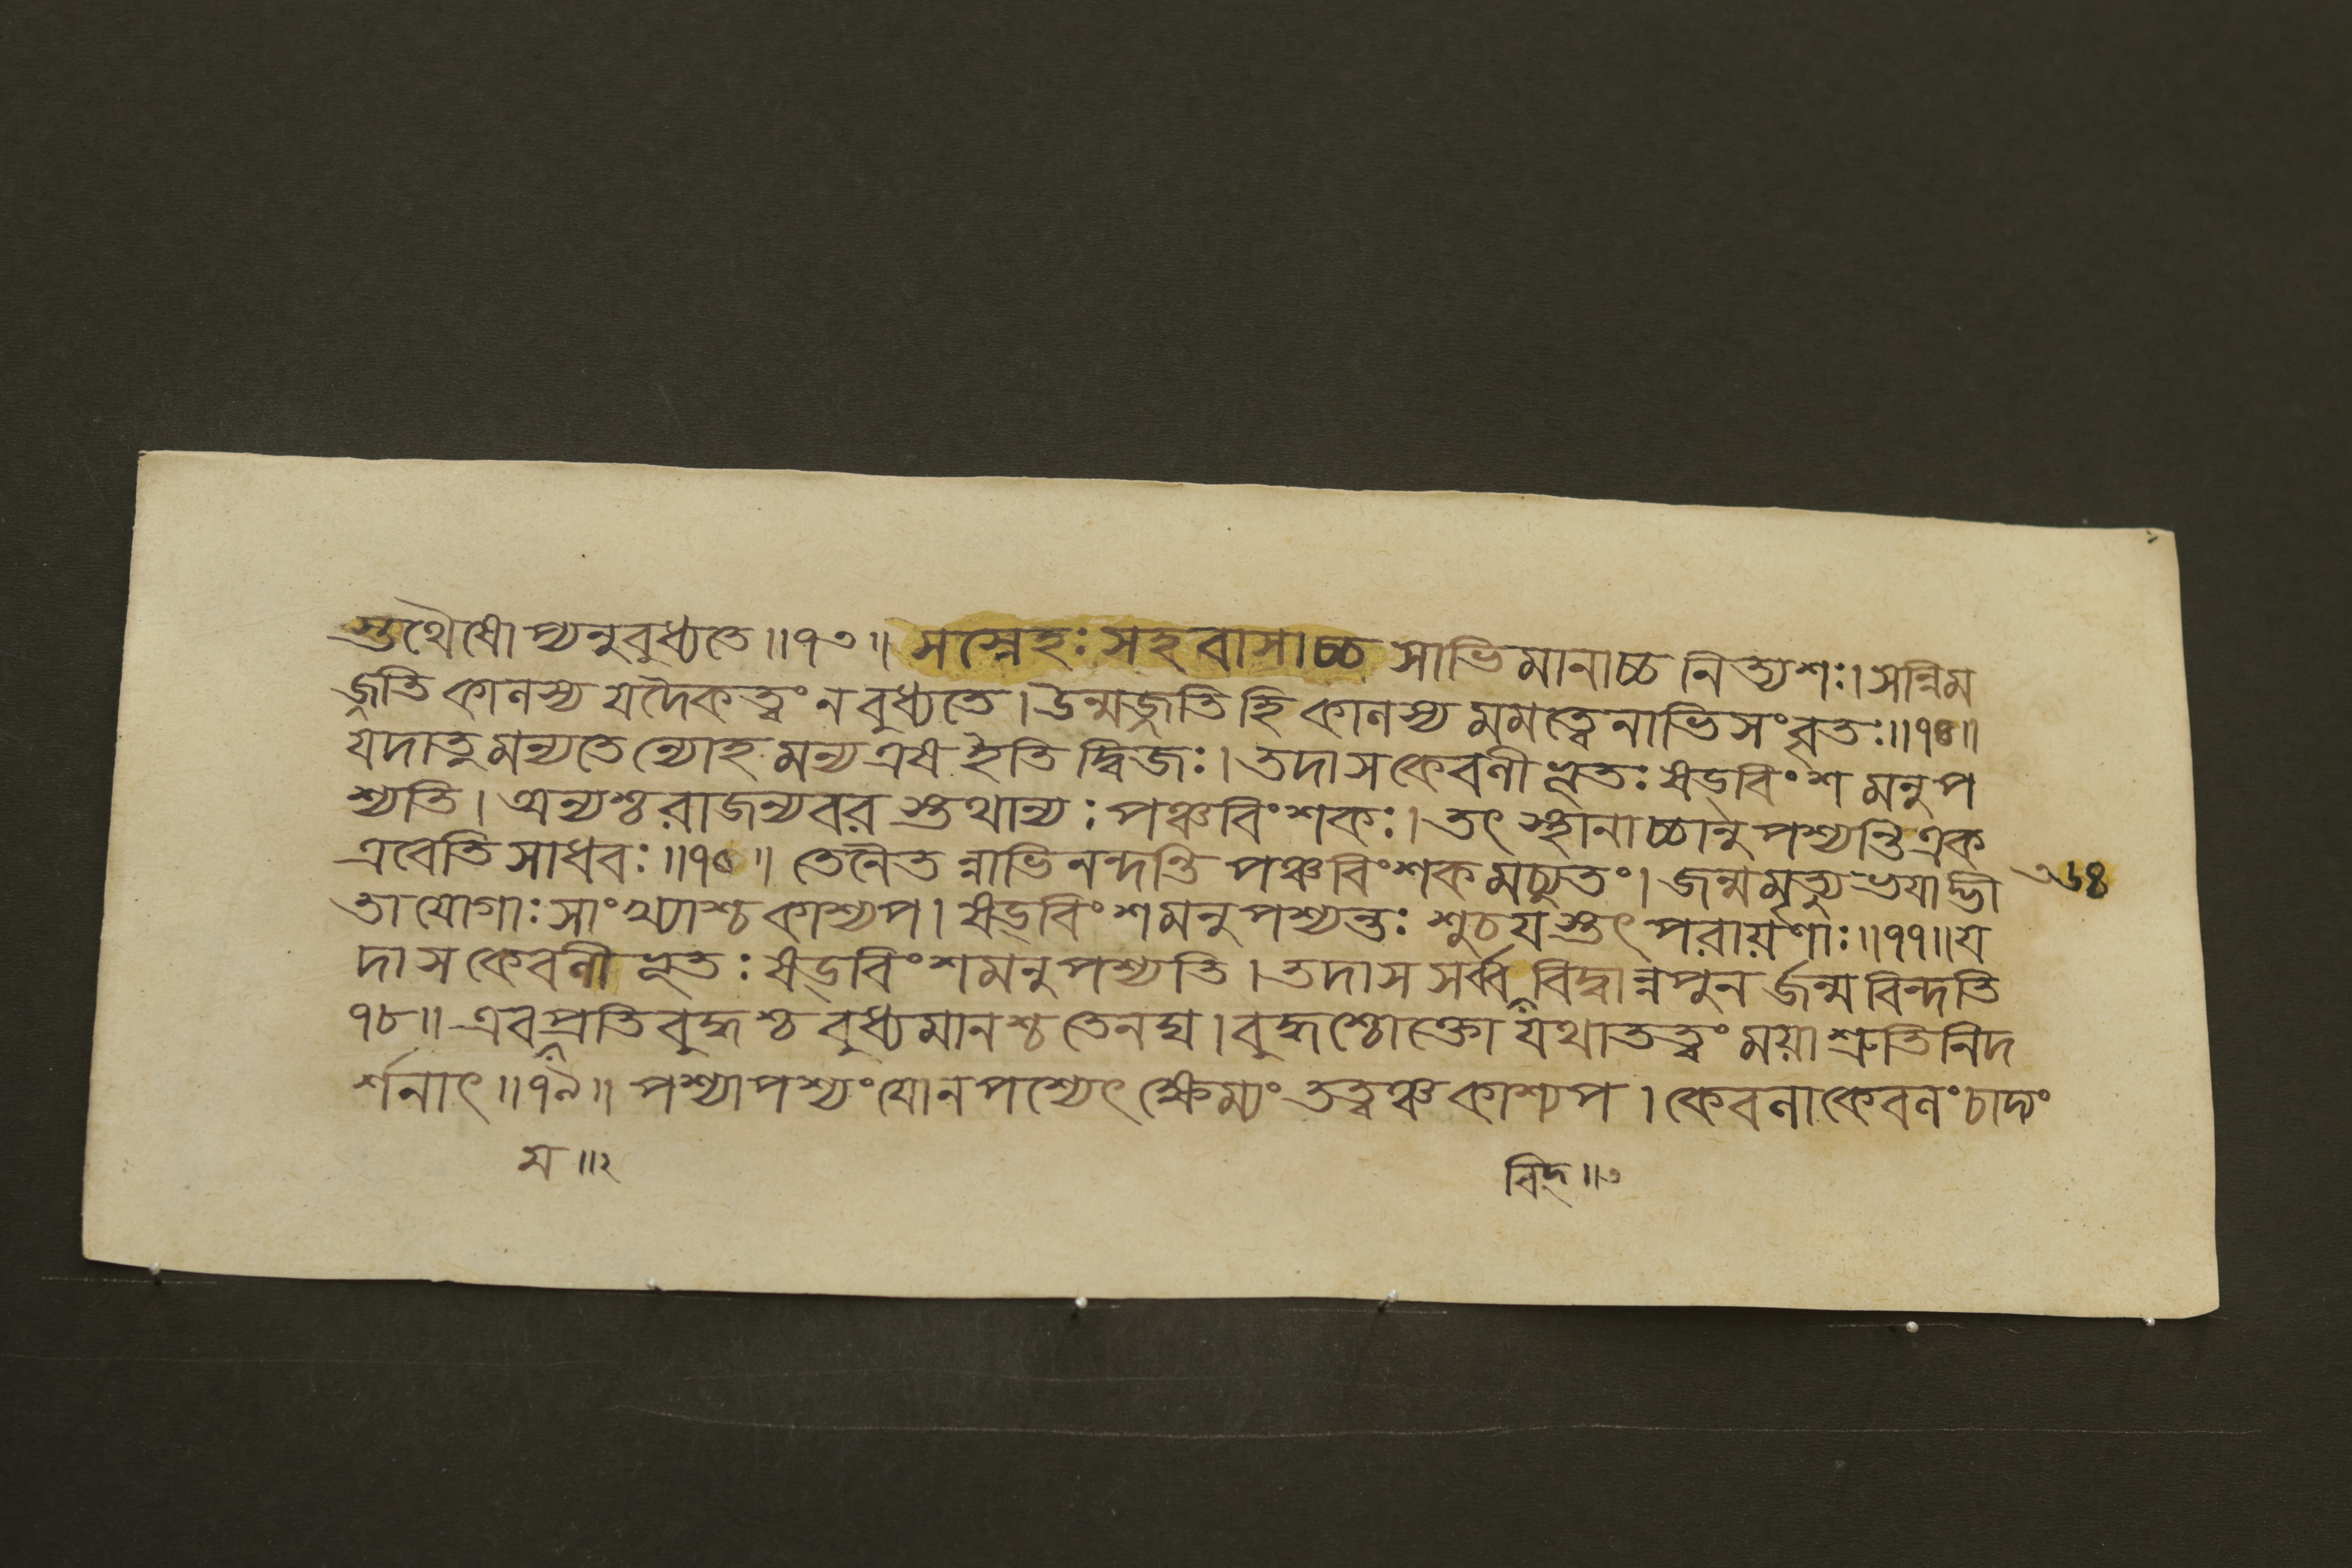 স্তথৈষোপ্যনুবুধ্যতে॥৭৩॥ সস্নেহঃ সহবাসাচ্চ সাভিমানাচ্চ নিত্যশঃ। সন্নিম
জ্জতি কালস্য যদৈকত্বং ন বুধ্যতে। উন্মজ্জতি হি কালস্য মমত্বেনাভিসংবৃতঃ॥৭৪॥
যদাতু মন্যতেন্যোহমন্য এষ ইতি দ্বিজঃ। তদা স কেবলীভূতঃ ষড্বিংশমনুপ
শ্যতি। অন্যশ্চ রাজন্যবর স্তথান্যঃ পঞ্চবিংশকঃ। তৎস্থানাচ্চানুপশ্যন্তি এক
এবেতি সাধবঃ॥৭৫॥ তেনৈতন্নাভিনন্দন্তি পঞ্চবিংশকমচ্যুতং। জন্মমৃত্যুভয়াদ্ভী
৩৬৪
তা যোগাঃ সাংখ্যাশ্চ কাশ্যপ। ষড্বিংশমনুপশ্যন্তঃ শুচয়স্তৎপরায়ণাঃ॥৭৭॥ য
দা স কেবলীভূতঃ ষড্বিংশমনুপশ্যতি। তদা স সর্ব্ববিদ্বান্নপুনর্জন্ম বিন্দতি
৭৮॥ এবপ্রতিবুদ্ধশ্চ বুধ্যমানশ্চ তেনঘ। বুদ্ধশ্চোক্তো যথাতত্ত্বং ময়া শ্রুতিনিদ
র্শনাৎ॥৭৯॥ পশ্যাপশ্যং যোনপশ্যেৎ ক্ষেম্যং তত্ত্বঞ্চ কাশ্যপ। কেবলাকেবলং চাদ্যং
ম॥২
বিদ্॥৩